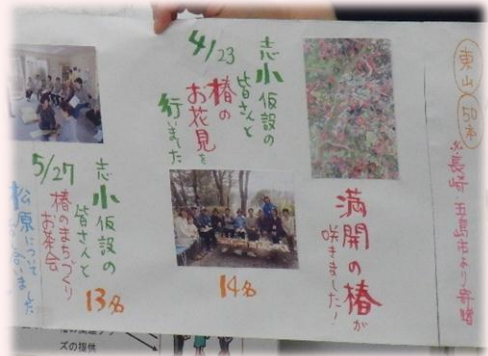 東山
50本
長崎 五島市より寄贈
満開の椿が
咲きました!
4/23
志小仮設の
皆さんと
椿の
お花見を
行いました
14名
5/27
志小仮設の
皆さんと
椿のまちづくり
お茶会
13名
松原について
ズの提供